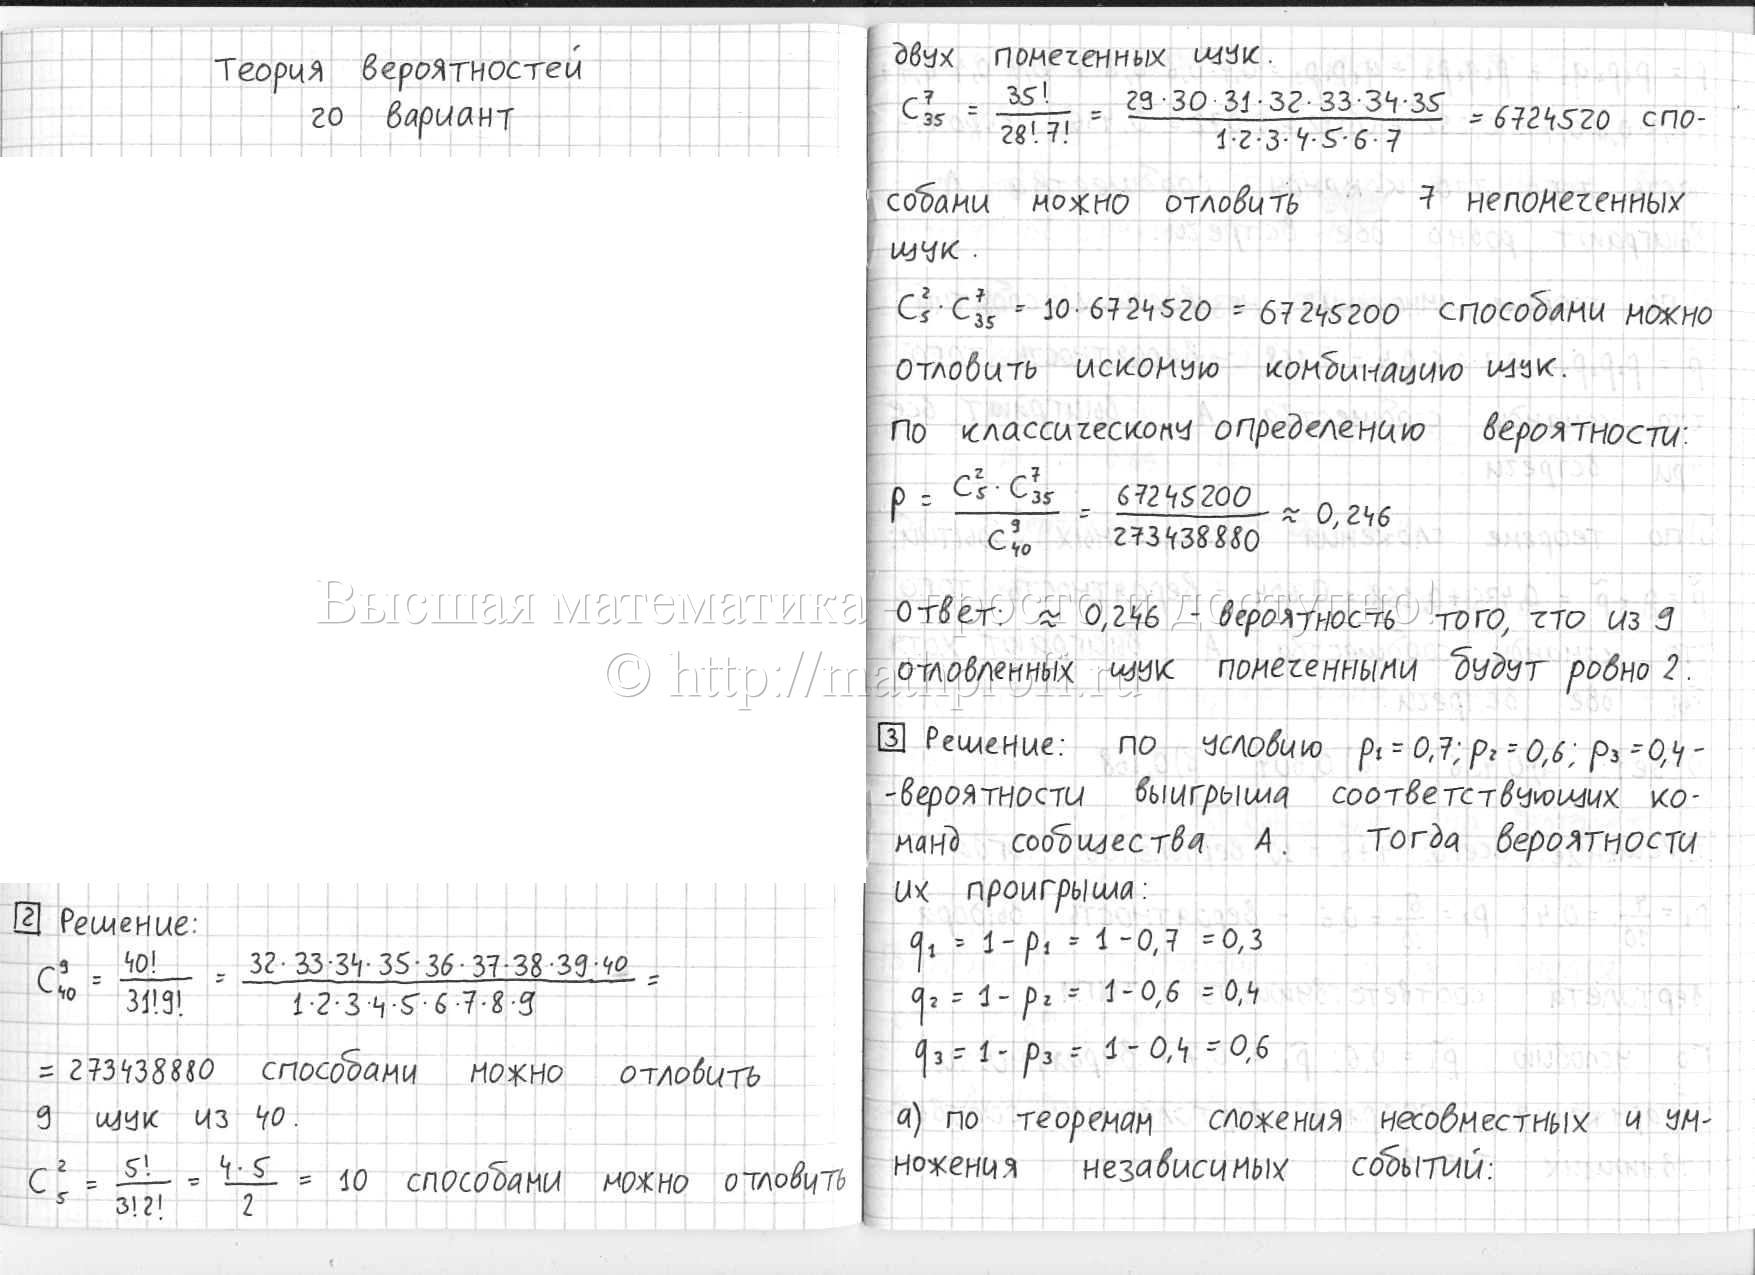 Теория вероятностей
20 вариант
2 Решение:
C⁹₄₀ = 40!/31!9! = 32·33·34·35·36·37·38·39·40/1·2·3·4·5·6·7·8·9 =
= 273438880 способами можно отловить
9 щук из 40.
C²₅ = 5!/3!2! = 4·5/2 = 10 способами можно отловить
двух помеченных щук.
C⁷₃₅ = 35!/28!7! = 29·30·31·32·33·34·35/1·2·3·4·5·6·7 = 6724520 спо-
собами можно отловить 7 непомеченных
щук.
C²₅·C⁷₃₅ = 10·6724520 = 67245200 способами можно
отловить искомую комбинацию щук.
По классическому определению вероятности:
p = C²₅·C⁷₃₅/C⁹₄₀ = 67245200/273438880 ≈ 0,246
Ответ: ≈ 0,246 - вероятность того, что из 9
отловленных щук помеченными будут ровно 2.
3 Решение: по условию p₁=0,7; p₂=0,6; p₃=0,4-
-вероятности выигрыша соответствующих ко-
манд сообщества А. Тогда вероятности
их проигрыша:
q₁ = 1 - p₁ = 1 - 0,7 = 0,3
q₂ = 1 - p₂ = 1 - 0,6 = 0,4
q₃ = 1 - p₃ = 1 - 0,4 = 0,6
а) по теоремам сложения несовместных и ум-
ножения независимых событий:
Высшая математика – просто и доступно!
© http://mathprofi.ru